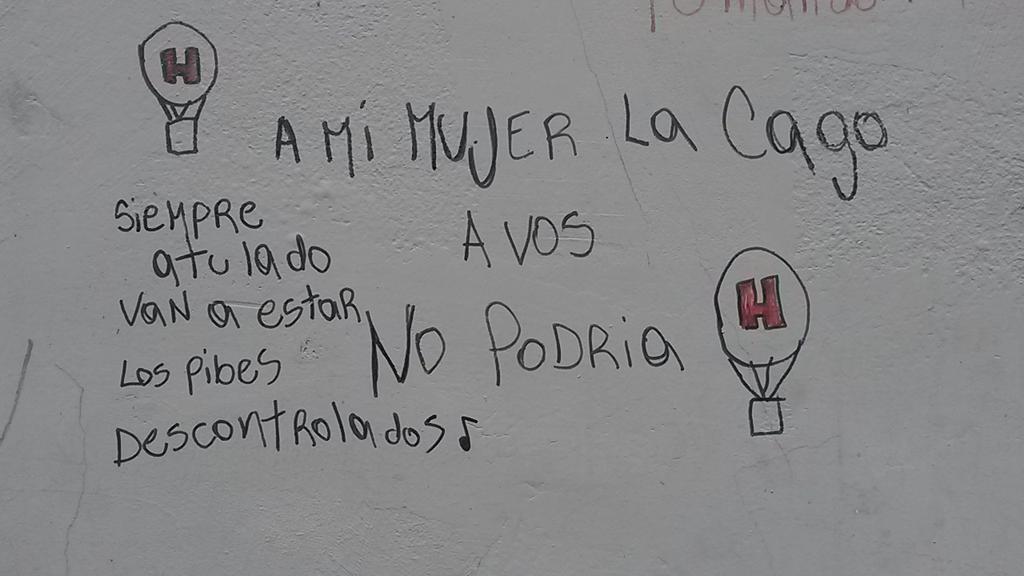 H
A Mi MUJER La Cago
A VOS
NO PODRia
H
SiEMPRE
atu lado
VaN a estaR
Los pibes
DescontRolados♪